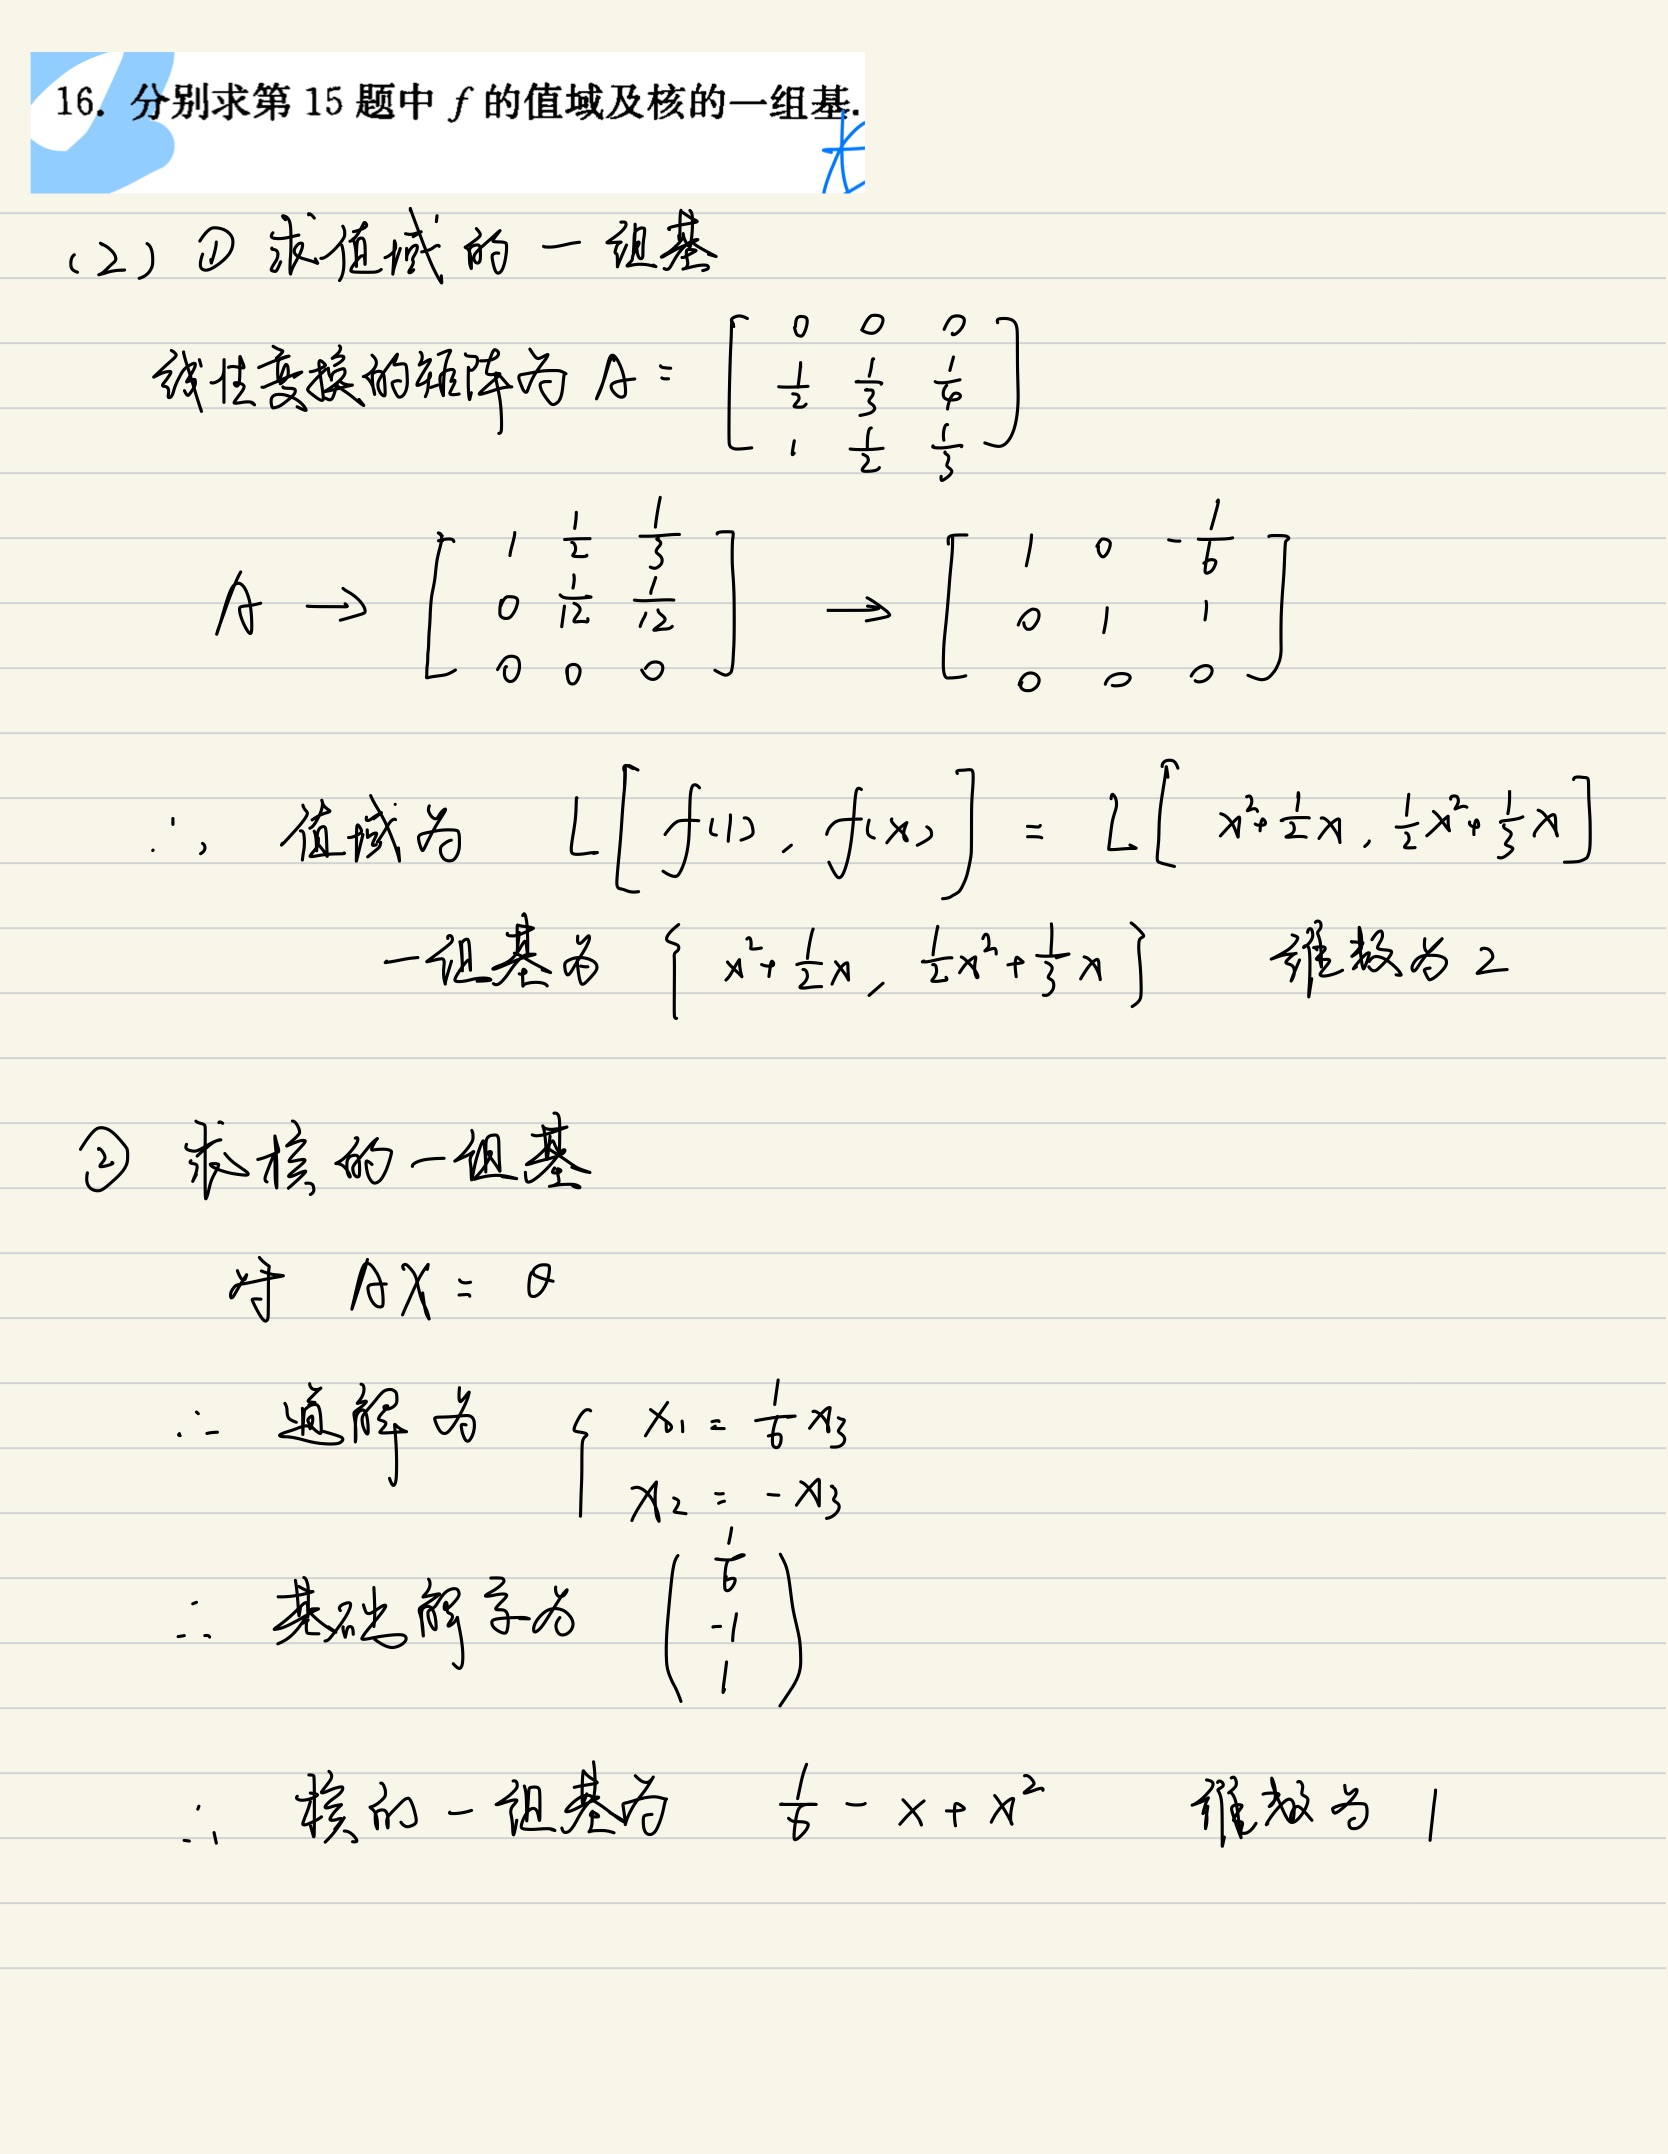 16. 分别求第 15 题中 f 的值域及核的一组基.
(2) ① 求值域的一组基
线性变换的矩阵为 A = [ 0 0 0 ; 1/2 1/3 1/4 ; 1 1/2 1/3 ]
A → [ 1 1/2 1/3 ; 0 1/12 1/12 ; 0 0 0 ] → [ 1 0 -1/6 ; 0 1 1 ; 0 0 0 ]
∴ 值域为 L[ f(1), f(x) ] = L[ x²+1/2x, 1/2x²+1/3x ]
一组基为 { x²+1/2x, 1/2x²+1/3x } 维数为 2
② 求核的一组基
对 AX = θ
∴ 通解为 { x₁ = 1/6 x₃
x₂ = -x₃
∴ 基础解系为 ( 1/6 ; -1 ; 1 )
∴ 核的一组基为 1/6 - x + x² 维数为 1